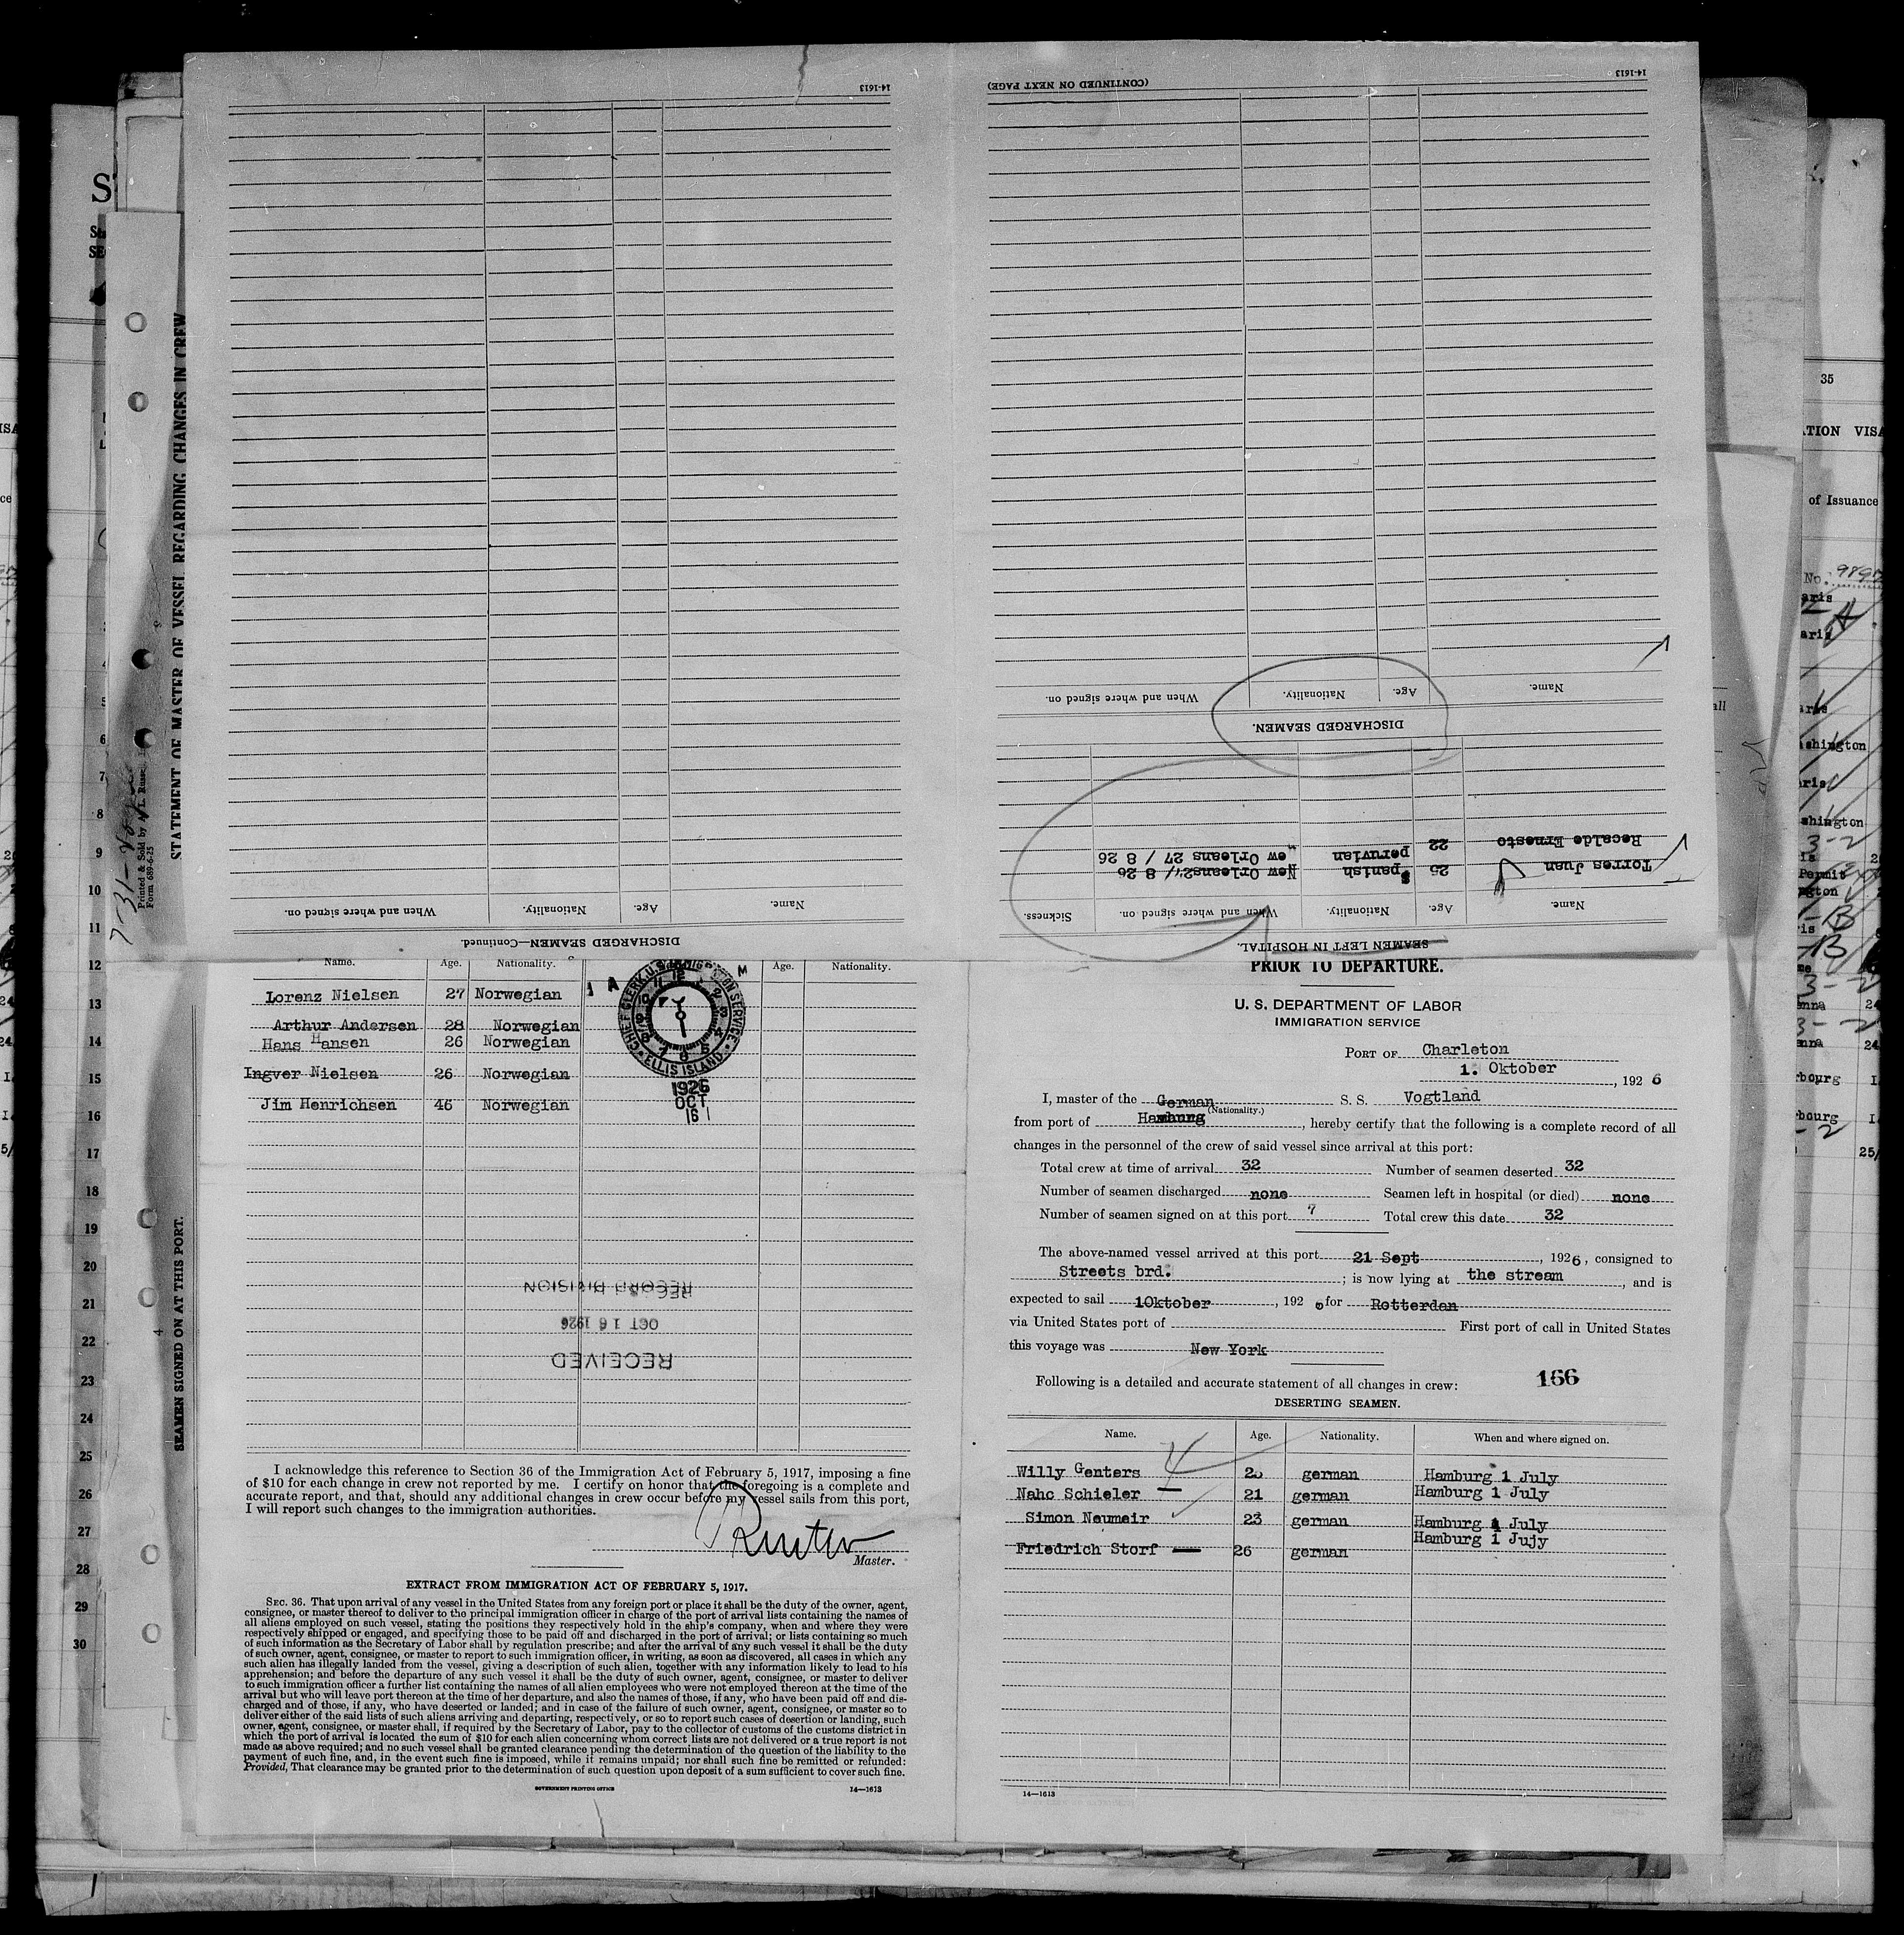 14-1613
DISCHARGED SEAMEN—Continued.
Name. Age. Nationality. When and where signed on.
14-1613
(CONTINUED ON NEXT PAGE)
SEAMEN LEFT IN HOSPITAL.
Name. Age. Nationality. When and where signed on. Sickness.
Torres Juan 25 spanish New Orleans
Recalde Ernesto 22 peruvian ew Orleans 27 / 8 26
DISCHARGED SEAMEN.
Name. Age. Nationality. When and where signed on.
STATEMENT OF MASTER OF VESSEL REGARDING CHANGES IN CREW
SEAMEN SIGNED ON AT THIS PORT.
4
Printed & Sold by
Form 689-6-25
Name. Age. Nationality. Age. Nationality.
Lorenz Nielsen 27 Norwegian
Arthur Andersen 28 Norwegian
Hans Hansen 26 Norwegian
Ingver Nielsen 26 Norwegian
Jim Henrichsen 46 Norwegian
CHIEF CLERK U.S. IMMIGRATION SERVICE
ELLIS ISLAND
1926
OCT
16
RECEIVED
OCT 16 1926
RECORD DIVISION
I acknowledge this reference to Section 36 of the Immigration Act of February 5, 1917, imposing a fine
of $10 for each change in crew not reported by me. I certify on honor that the foregoing is a complete and
accurate report, and that, should any additional changes in crew occur before my vessel sails from this port,
I will report such changes to the immigration authorities.
Master.
EXTRACT FROM IMMIGRATION ACT OF FEBRUARY 5, 1917.
SEC. 36. That upon arrival of any vessel in the United States from any foreign port or place it shall be the duty of the owner, agent,
consignee, or master thereof to deliver to the principal immigration officer in charge of the port of arrival lists containing the names of
all aliens employed on such vessel, stating the positions they respectively hold in the ship's company, when and where they were
respectively shipped or engaged, and specifying those to be paid off and discharged in the port of arrival; or lists containing so much
of such information as the Secretary of Labor shall by regulation prescribe; and after the arrival of any such vessel it shall be the duty
of such owner, agent, consignee, or master to report to such immigration officer, in writing, as soon as discovered, all cases in which any
such alien has illegally landed from the vessel, giving a description of such alien, together with any information likely to lead to his
apprehension; and before the departure of any such vessel it shall be the duty of such owner, agent, consignee, or master to deliver
to such immigration officer a further list containing the names of all alien employees who were not employed thereon at the time of the
arrival but who will leave port thereon at the time of her departure, and also the names of those, if any, who have been paid off and dis-
charged and of those, if any, who have deserted or landed; and in case of the failure of such owner, agent, consignee, or master so to
deliver either of the said lists of such aliens arriving and departing, respectively, or so to report such cases of desertion or landing, such
owner, agent, consignee, or master shall, if required by the Secretary of Labor, pay to the collector of customs of the customs district in
which the port of arrival is located the sum of $10 for each alien concerning whom correct lists are not delivered or a true report is not
made as above required; and no such vessel shall be granted clearance pending the determination of the question of the liability to the
payment of such fine, and, in the event such fine is imposed, while it remains unpaid; nor shall such fine be remitted or refunded:
Provided, That clearance may be granted prior to the determination of such question upon deposit of a sum sufficient to cover such fine.
GOVERNMENT PRINTING OFFICE 14—1613
PRIOR TO DEPARTURE.
U. S. DEPARTMENT OF LABOR
IMMIGRATION SERVICE
PORT OF Charleton
1. Oktober, 1926
I, master of the German S. S. Vogtland
(Nationality.)
from port of Hamburg, hereby certify that the following is a complete record of all
changes in the personnel of the crew of said vessel since arrival at this port:
Total crew at time of arrival 32 Number of seamen deserted 32
Number of seamen discharged none Seamen left in hospital (or died) none
Number of seamen signed on at this port 7 Total crew this date 32
The above-named vessel arrived at this port 21 Sept, 1926, consigned to
Streets brd. ; is now lying at the stream, and is
expected to sail 1Oktober, 192 6 for Rotterdan
via United States port of First port of call in United States
this voyage was New York
Following is a detailed and accurate statement of all changes in crew: 166
DESERTING SEAMEN.
Name. Age. Nationality. When and where signed on.
Willy Genters german Hamburg 1 July
Nahc Schieler 21 german Hamburg 1 July
Simon Neumeir 23 german Hamburg 1 July
Friedrich Storf 26 german Hamburg 1 Jujy
14—1613
6
7
8
9
10
11
12
13
14
15
16
17
18
19
20
21
22
23
24
25
26
27
28
29
30
35
of Issuance